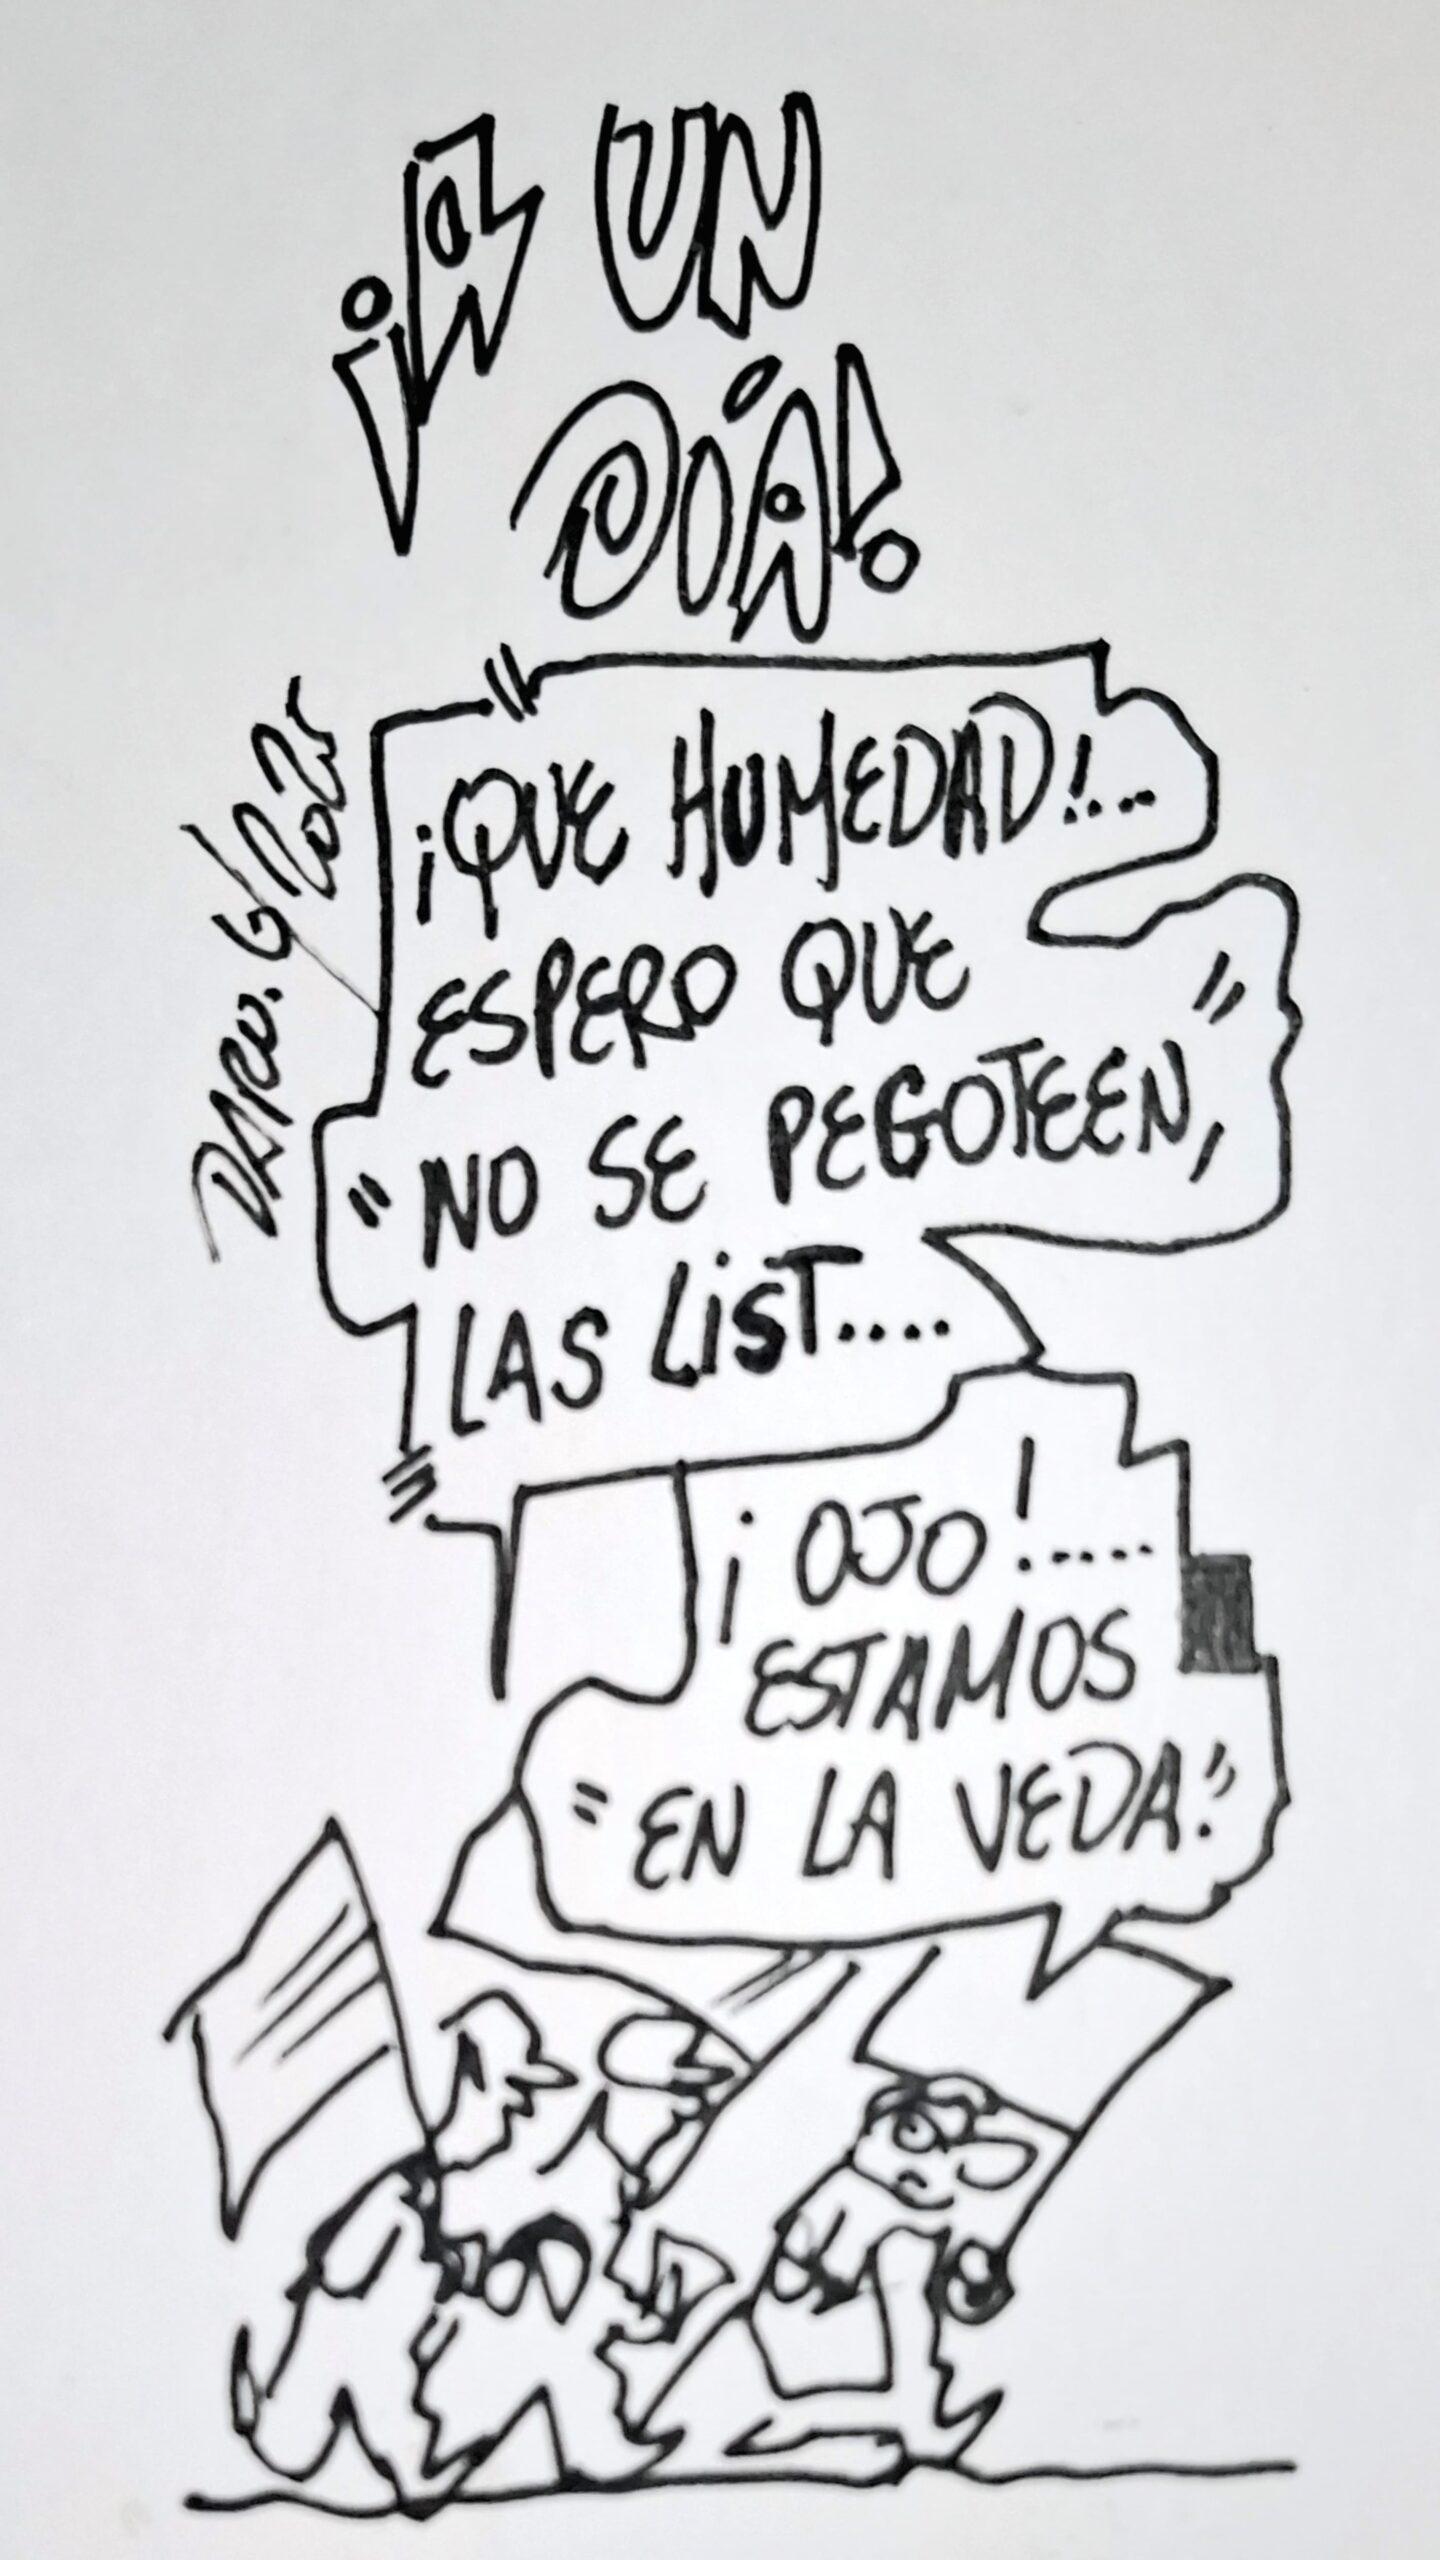 ¡A UN
DÍA!
¡QUE HUMEDAD!...
ESPERO QUE
"NO SE PEGOTEEN,"
LAS LIST....
¡OJO!.....
ESTAMOS
"EN LA VEDA."
DARO. G/2025